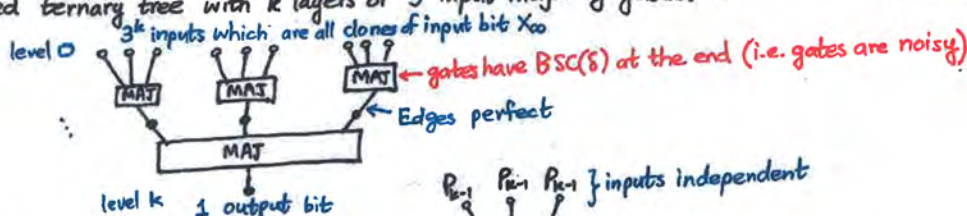 ed ternary tree with k layers of 3-input majority gates.
level 0 3^k inputs which are all clones of input bit X∞
MAJ MAJ MAJ ← gates have BSC(δ) at the end (i.e. gates are noisy)
← Edges perfect
MAJ
P_{k-1} P_{k-1} P_{k-1} } inputs independent
level k 1 output bit